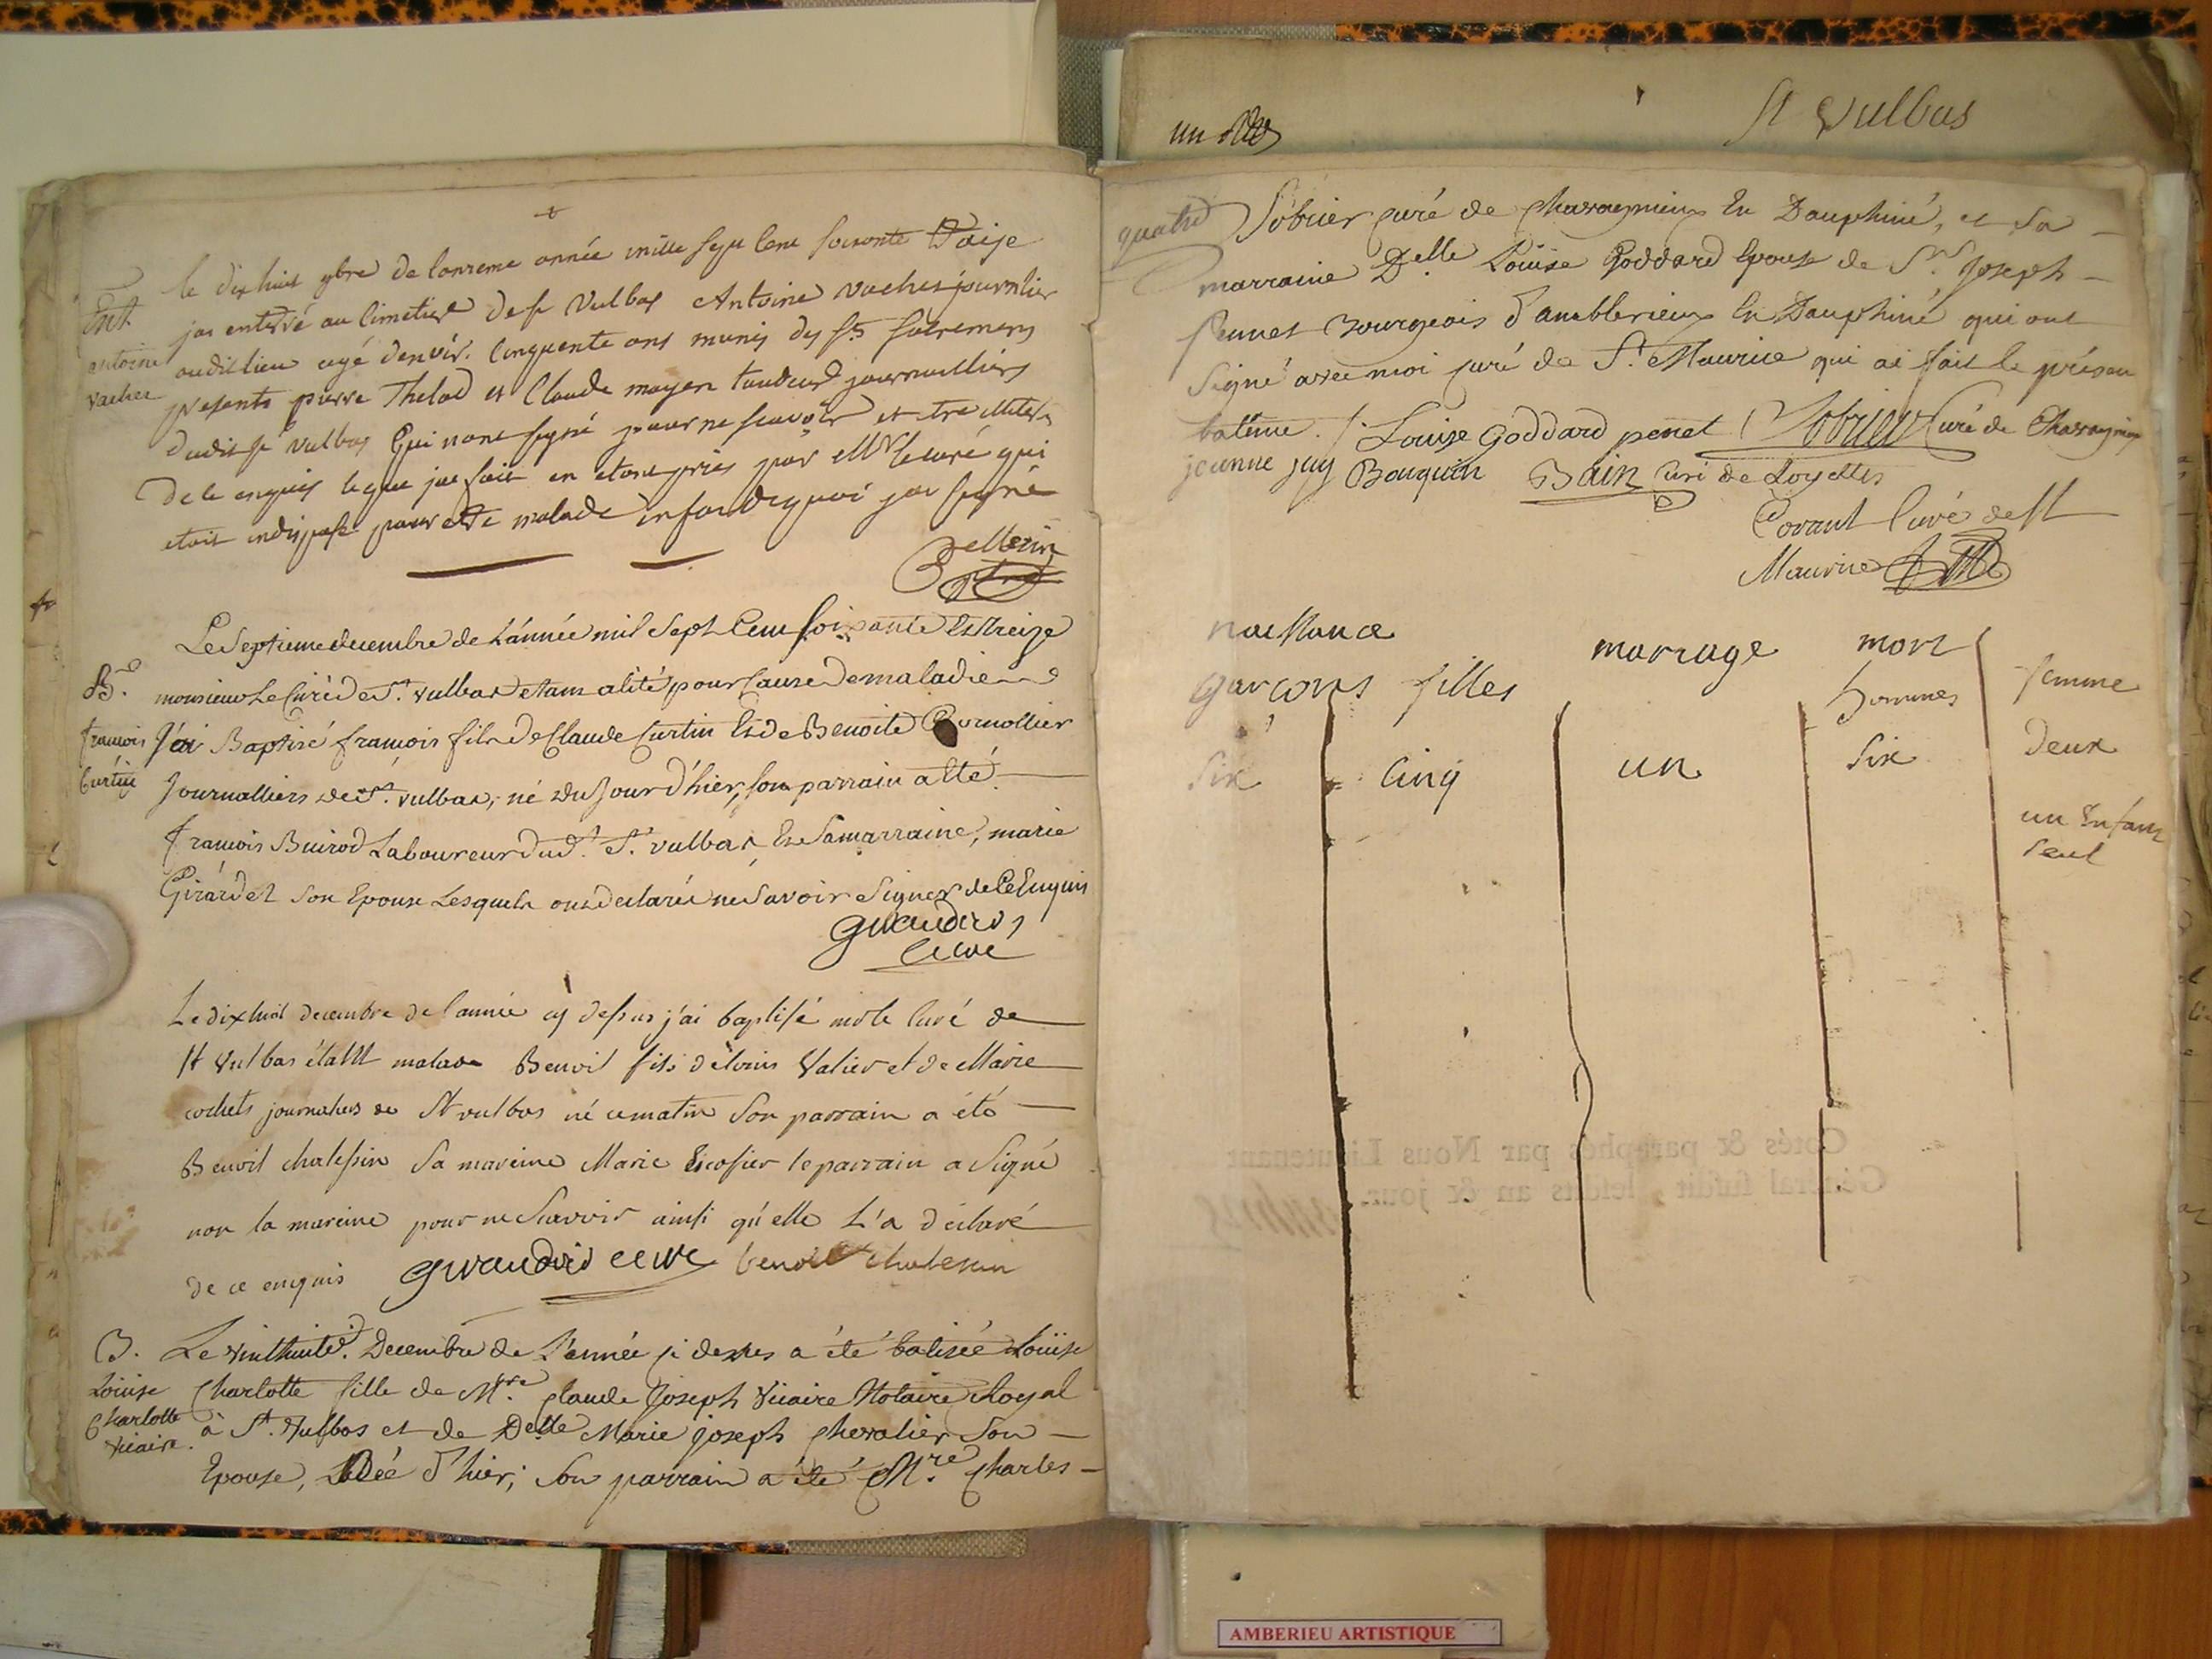 le dix huit 9bre de l'onzeme année mille sept cent soisonte traise
Ent
antoine
vacher
jai enterré au cimetier de st Vulbas Antoine vacher journalier
audit lieu agé d'envir. cinquente ans munis des sts sacremens
présents pierre Thelod et Claude moyen tondeur journalliers
dudit st vulbas qui nont signé pour ne scavoir
de le enquis le que jai fait en etant priés par Mr le curé qui
etoit indispose pour etre malade en foi de quoi jai signé
Pellerin
Le septieme decembre de L'année mil sept Cent soixante Et treize
B.
francois
Curtin
monsieur Le Curé de St. vulbas etant alité pour Cause de maladie
J'ai Baptisé francois fils de Claude Curtin Et de Benoite Cornollier
Journalliers de St. vulbas, né du jour d'hier, son parrain a eté
francois Buirod Laboureur dud. St. vulbas, Et Sa marraine, marie
Girardet son Epouse Lesquels ont declarés ne Savoir Signer de Ce Enquis
giraudier
Curé
Le dixhuit decembre de l'année cy dessus j'ai baptisé mr le curé de
St Vulbas étant malade Benoit fils de louis Valier et de Marie
cochets journaliers de St vulbas né ce matin Son parrain a été
Benoit chalessin Sa mareine Marie Ecosier le parrain a Signé
non la mareine pour ne Scavoir ainsi qu'elle L'a déclaré
de ce enquis giraudier curé benoit chalesin
B.
Louise
Charlotte
Vicaire.
Le vinthuite. Decembre de L'année ci dessus a été batisée Louise
Charlotte fille de Mre. Claude Joseph Vicaire Notaire Royal
à St. Vulbas et de Delle Marie joseph Chevalier Son
Epouse, Née d'hier; Son parrain a été Mre. Charles
St Vulbas
quatre
Sobrier Curé de Charagnieux En Dauphiné, et Sa
marraine Delle Louise Goddard Epouse de Sr. Joseph
pennet Bourgeois d'amblerieux En Dauphiné qui ont
Signé avec moi Curé de St. Maurice qui ai fait le présen
batême. /. Louise goddard penet Sobrier Curé de Charagnieux
jeanne Bouquin Bain Curé de Loyettes
Covant Curé de St
Maurice
naissance
marriage
mort
garçons filles
hommes
femme
Six
Cinq
un
Six
Deux
un Enfant
Seul
Cotés & paraphés par Nous Lieutenant
Général susdit, lesdits an & jour.
AMBERIEU ARTISTIQUE